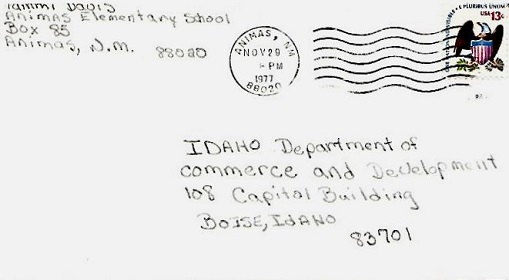 Tammi Davis
Animas Elementary Shool
Box 85
Animas, N.M. 88020
ANIMAS, NM
NOV 29
PM
1977
88020
E PLURIBUS UNUM
USA 13c
IDAHO Department of
commerce and Development
108 Capitol Building
BOISE, IDAHO
83701